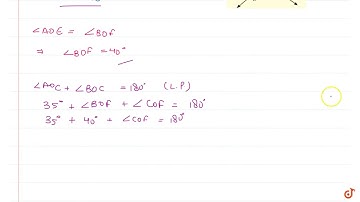 ∠AOE = ∠BOF
⇒ ∠BOF = 40°
∠AOC + ∠BOC = 180° (L.P)
35° + ∠BOF + ∠COF = 180°
35° + 40° + ∠COF = 180°